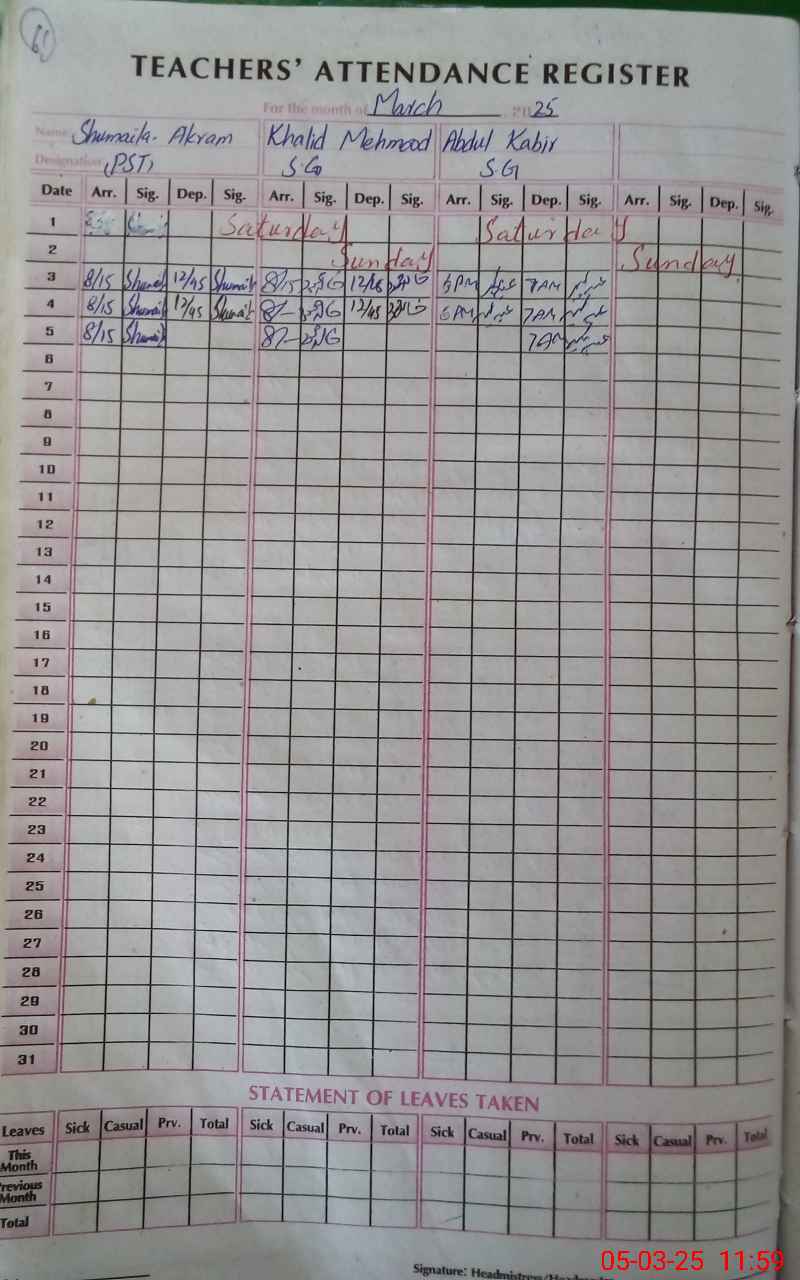 61
TEACHERS' ATTENDANCE REGISTER
For the month of March 2025
Name Shumaila Akram Khalid Mehmood Abdul Kabir
Designation (PST) S.G S.G
Date Arr. Sig. Dep. Sig. Arr. Sig. Dep. Sig. Arr. Sig. Dep. Sig. Arr. Sig. Dep. Sig.
1 Saturday Saturday
2 Sunday Sunday
3 8/15 Shumail 12/45 Shumail 8/15 12/45 6PM 7AM
4 8/15 Shumail 12/45 Shumail 8/- 12/45 6PM 7AM
5 8/15 Shumail 8/- 7AM
6
7
8
9
10
11
12
13
14
15
16
17
18
19
20
21
22
23
24
25
26
27
28
29
30
31
STATEMENT OF LEAVES TAKEN
Leaves Sick Casual Prv. Total Sick Casual Prv. Total Sick Casual Prv. Total Sick Casual Prv. Total
This Month
Previous Month
Total
Signature: Headmistress/
05-03-25 11:59